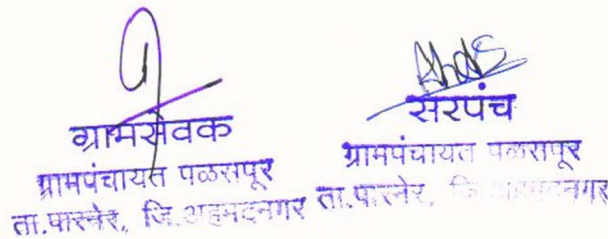 ग्रामसेवक
ग्रामपंचायत पळसपूर
ता.पारनेर, जि.अहमदनगर
सरपंच
ग्रामपंचायत पळसपूर
ता.पारनेर, जि.अहमदनगर